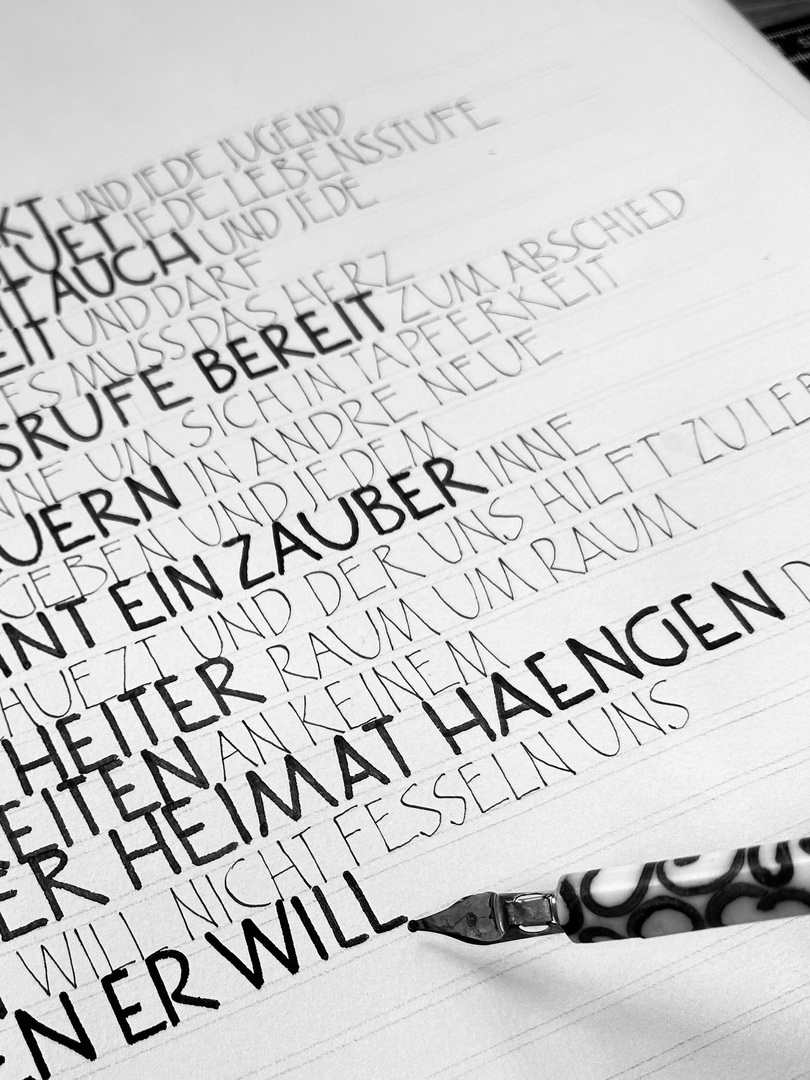 KT UND JEDE JUGEND
LUET JEDE LEBENSSTUFE
T AUCH UND JEDE
EIT UND DARF
ES MUSS DAS HERZ
SRUFE BEREIT ZUM ABSCHIED
NNE UM SICH IN TAPFERKEIT
UERN IN ANDRE NEUE
GEBEN UND JEDEM
NT EIN ZAUBER INNE
HUEZT UND DER UNS HILFT ZU LEB
HEITER RAUM UM RAUM
EITEN AN KEINEM
ER HEIMAT HAENGEN D
WILL NICHT FESSELN UNS
EN ER WILL